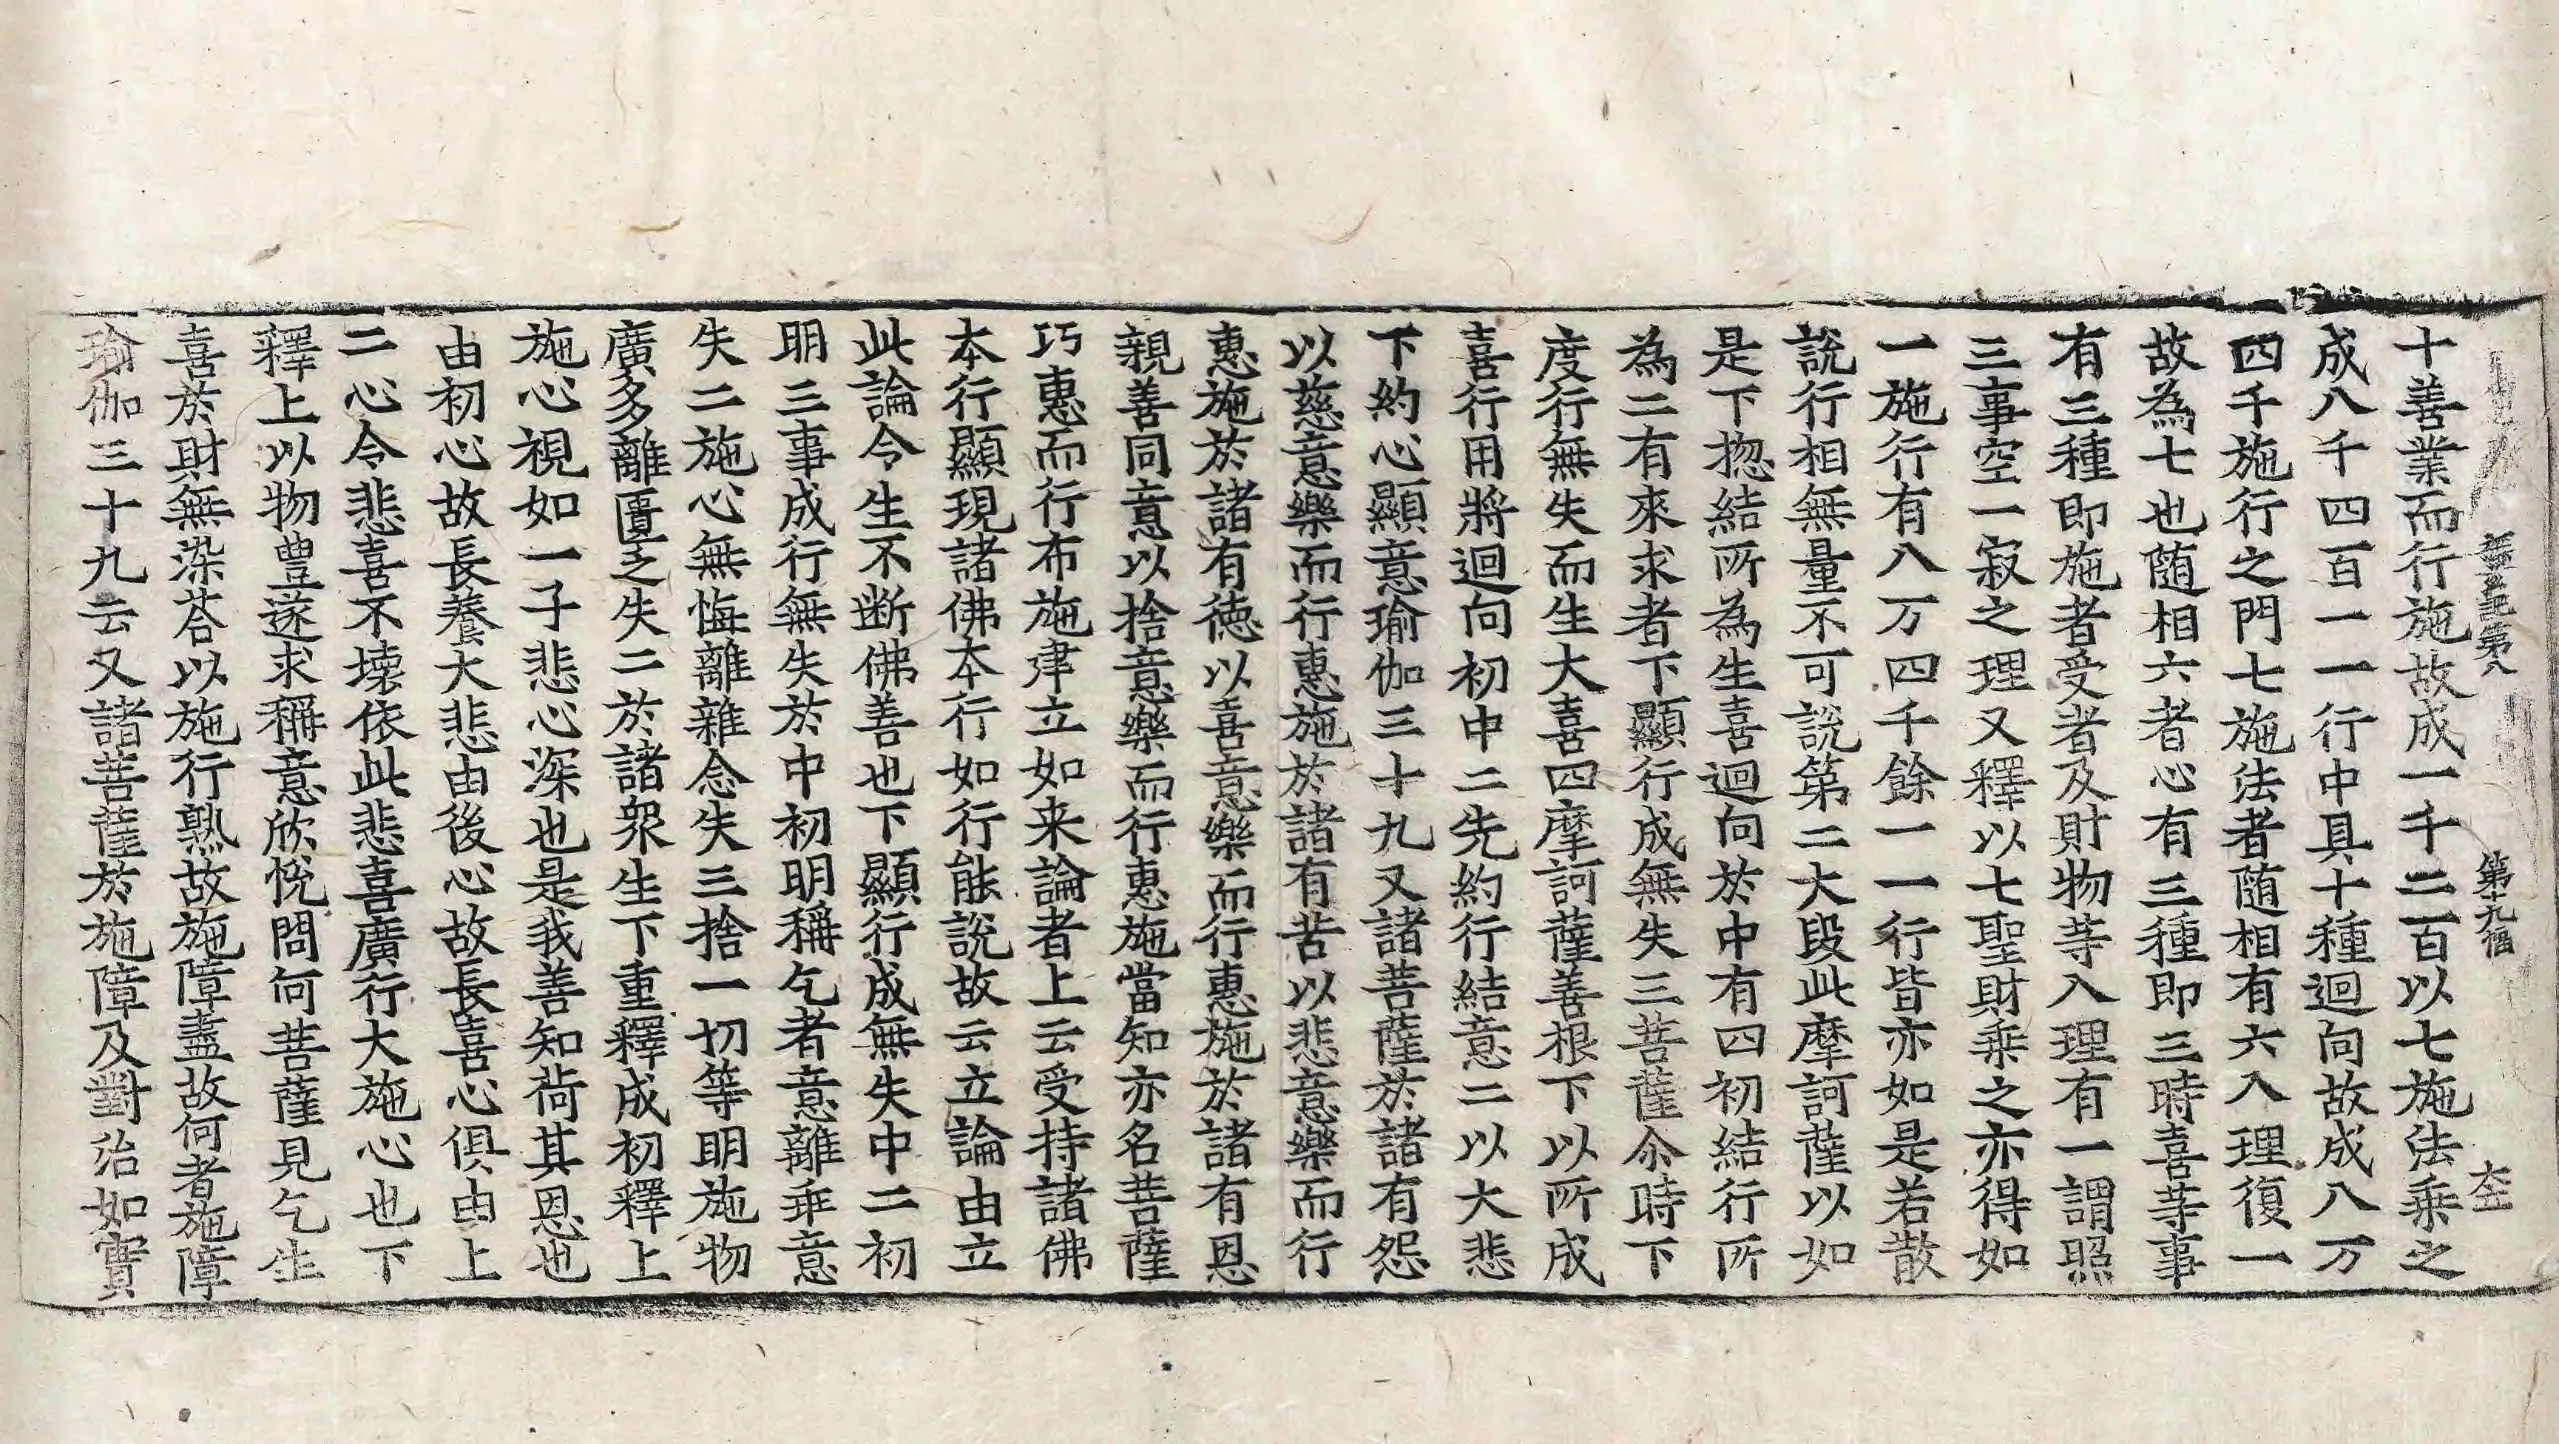 第八
第十九幅
十善業而行施故成一千二百以七施法乘之
成八千四百一一行中具十種迴向故成八万
四千施行之門七施法者随相有六入理復一
故為七也随相六者心有三種即三時喜等事
有三種即施者受者及財物等入理有一謂照
三事空一寂之理又釋以七聖財乘之亦得如
一施行有八万四千餘一一行皆亦如是若散
說行相無量不可說第二大段此摩訶薩以如
是下揔結所為生喜迴向於中有四初結行所
為二有來求者下顯行成無失三菩薩尒時下
度行無失而生大喜四摩訶薩善根下以所成
喜行用將迴向初中二先約行結意二以大悲
下約心顯意瑜伽三十九又諸菩薩於諸有怨
以慈意樂而行惠施於諸有苦以悲意樂而行
惠施於諸有德以喜意樂而行惠施於諸有恩
親善同意以捨意樂而行惠施當知亦名菩薩
巧惠而行布施建立如来論者上云受持諸佛
本行顯現諸佛本行如行能說故云立論由立
此論令生不断佛善也下顯行成無失中二初
明三事成行無失於中初明稱乞者意離乖意
失二施心無悔離雜念失三捨一切等明施物
廣多離匱乏失二於諸衆生下重釋成初釋上
施心視如一子悲心深也是我善知荷其恩也
由初心故長養大悲由後心故長喜心俱由上
二心令悲喜不壊依此悲喜廣行大施心也下
釋上以物豊遂求稱意欣悅問何菩薩見乞生
喜於財無染荅以施行熟故施障盡故何者施障
瑜伽三十九云又諸菩薩於施障及對治如實